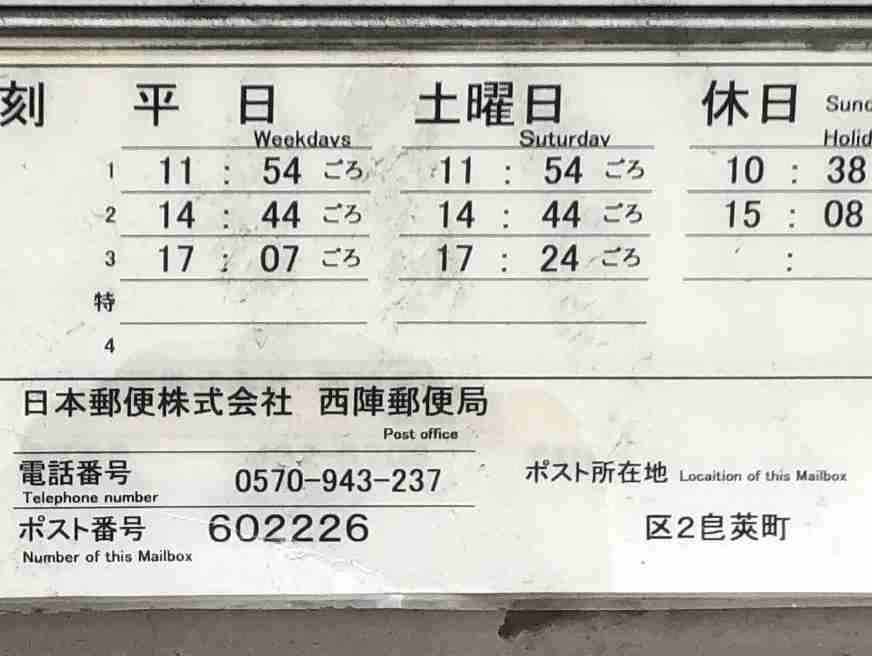 刻 平 日 土曜日 休日 Sund
Weekdays Suturday Holid
1 11 : 54 ごろ 11 : 54 ごろ 10 : 38
2 14 : 44 ごろ 14 : 44 ごろ 15 : 08
3 17 : 07 ごろ 17 : 24 ごろ :
特
4
日本郵便株式会社 西陣郵便局
Post office
電話番号 0570-943-237 ポスト所在地 Locaition of this Mailbox
Telephone number
ポスト番号 602226 区2皀莢町
Number of this Mailbox